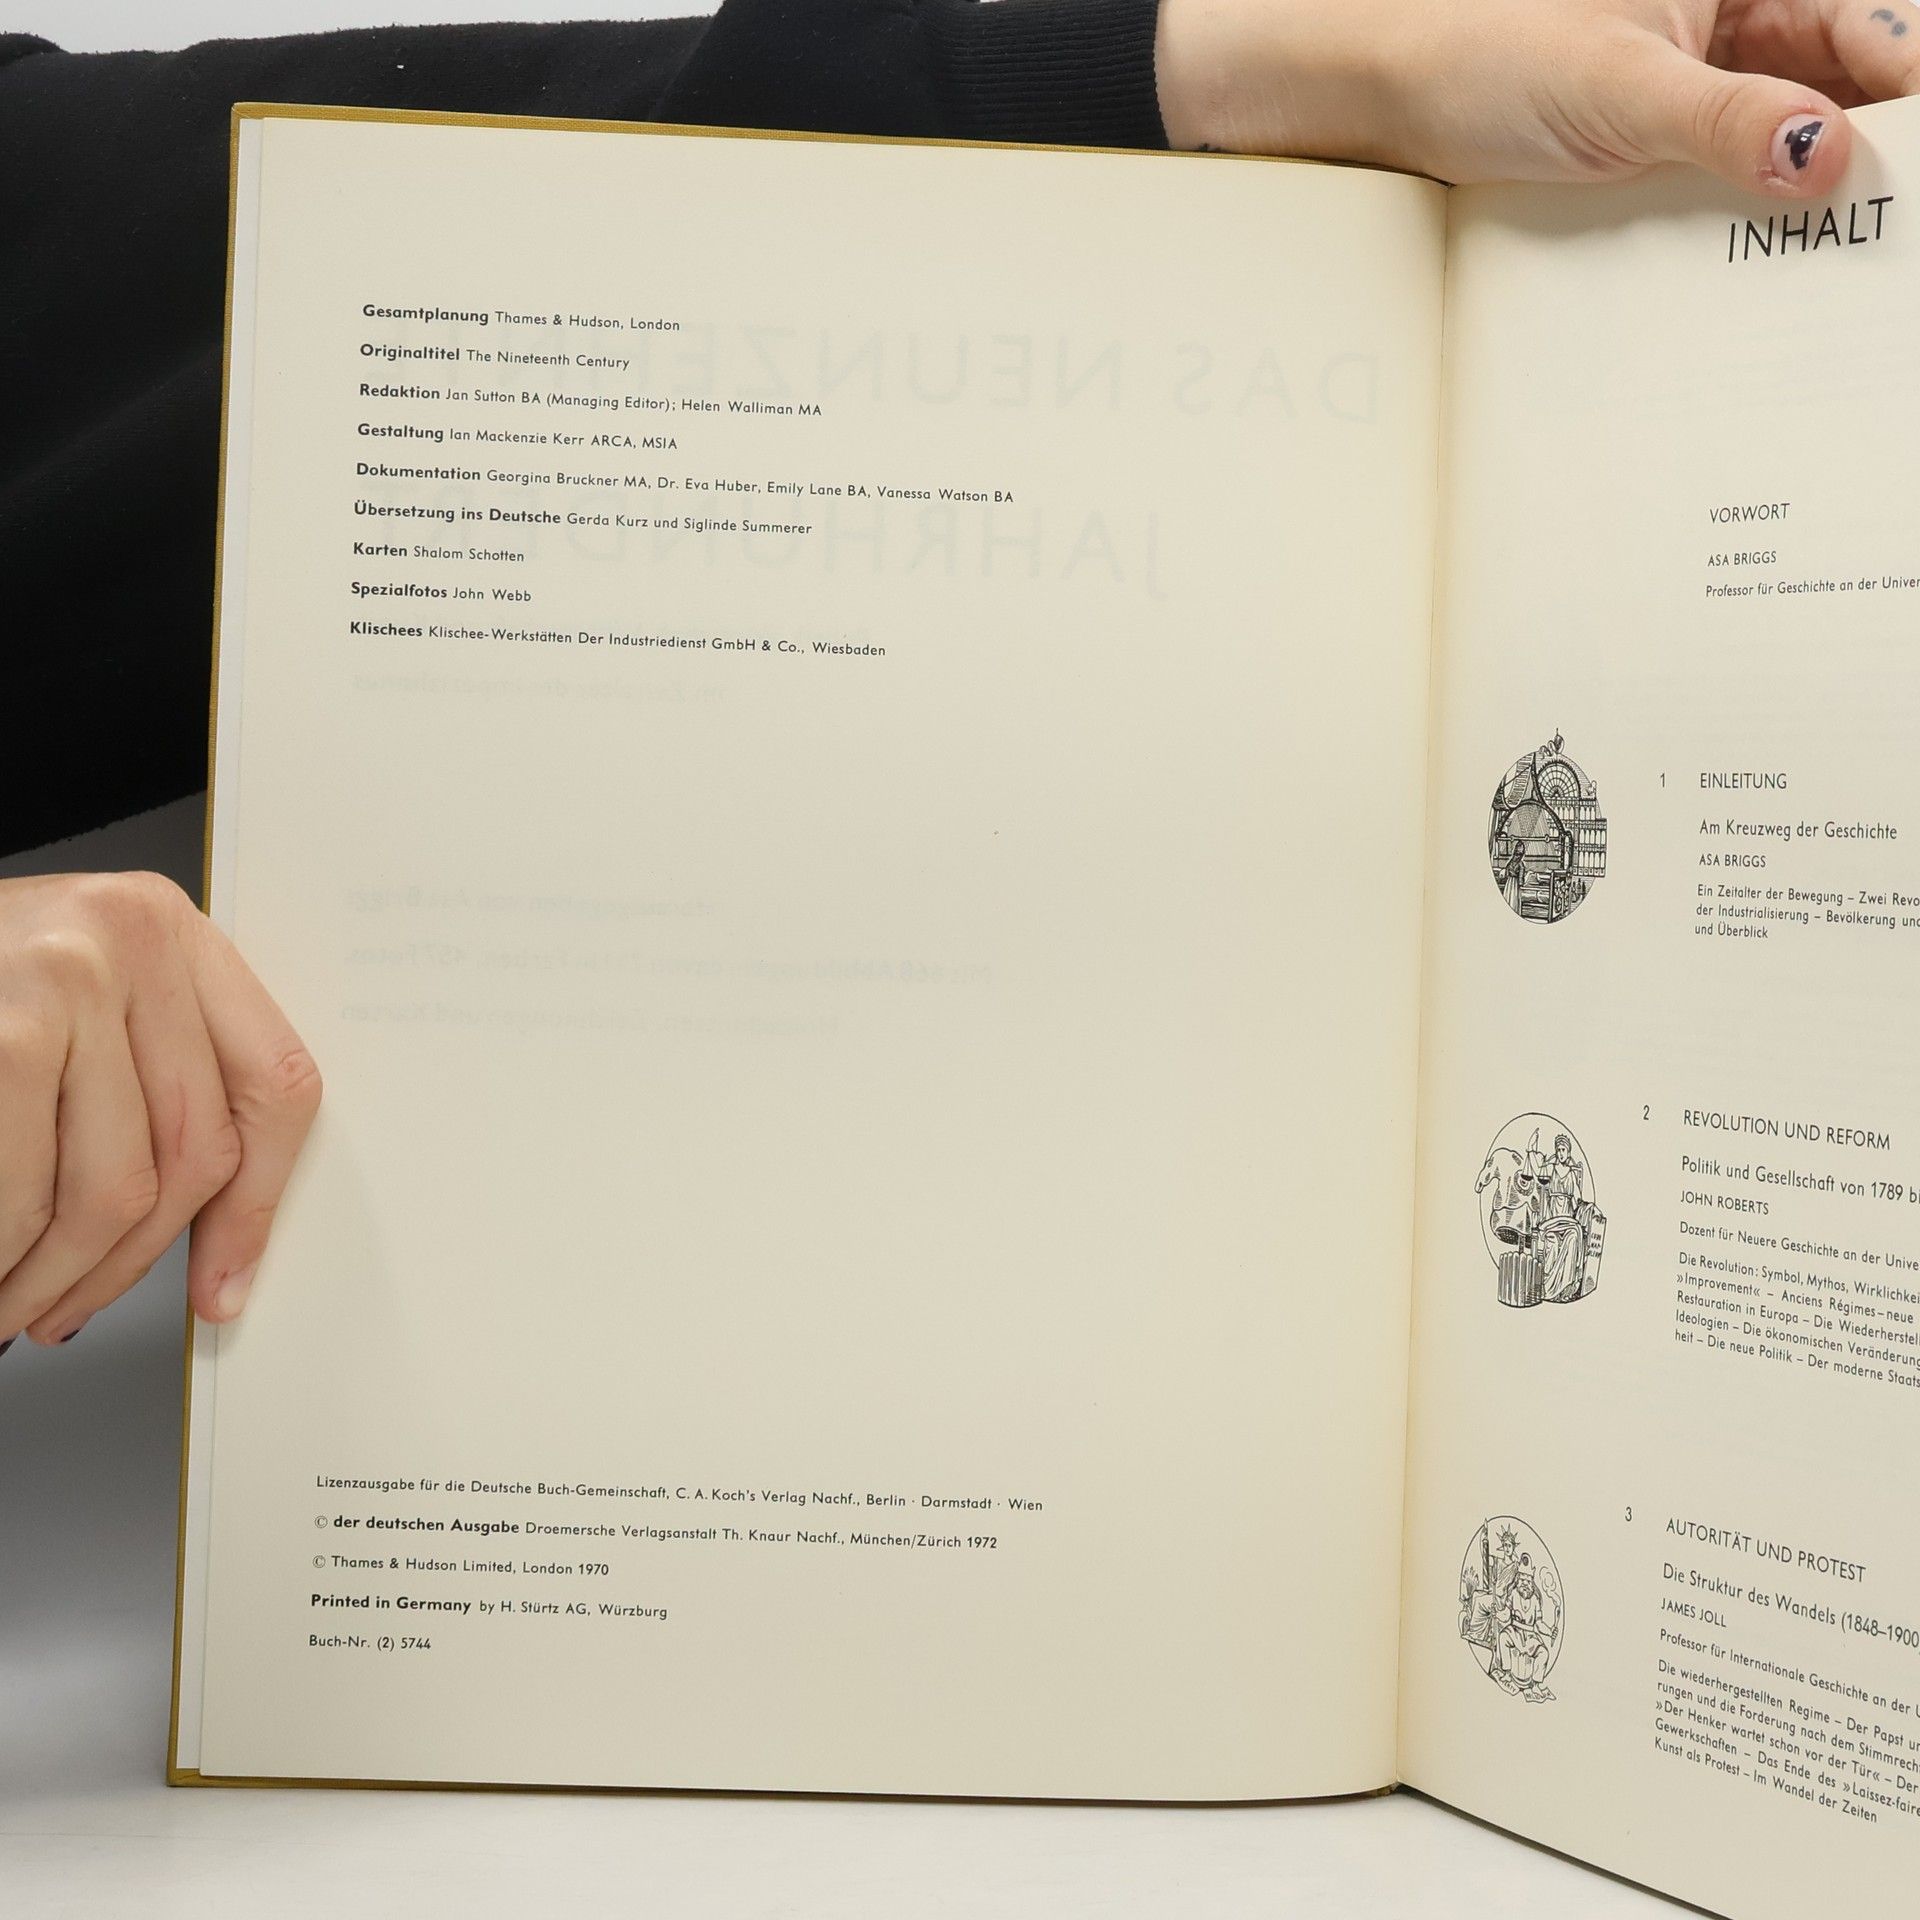 Gesamtplanung Thames & Hudson, London
Originaltitel The Nineteenth Century
Redaktion Jan Sutton BA (Managing Editor); Helen Walliman MA
Gestaltung Ian Mackenzie Kerr ARCA, MSIA
Dokumentation Georgina Bruckner MA, Dr. Eva Huber, Emily Lane BA, Vanessa Watson BA
Übersetzung ins Deutsche Gerda Kurz und Siglinde Summerer
Karten Shalom Schotten
Spezialfotos John Webb
Klischees Klischee-Werkstätten Der Industriedienst GmbH & Co., Wiesbaden
Lizenzausgabe für die Deutsche Buch-Gemeinschaft, C. A. Koch's Verlag Nachf., Berlin · Darmstadt · Wien
© der deutschen Ausgabe Droemersche Verlagsanstalt Th. Knaur Nachf., München/Zürich 1972
© Thames & Hudson Limited, London 1970
Printed in Germany by H. Stürtz AG, Würzburg
Buch-Nr. (2) 5744
INHALT
VORWORT
ASA BRIGGS
Professor für Geschichte an der
1 EINLEITUNG
Am Kreuzweg der Geschichte
ASA BRIGGS
Ein Zeitalter der Bewegung – Zwei
der Industrialisierung – Bevölkerung
und Überblick
2 REVOLUTION UND REFORM
Politik und Gesellschaft von 1789
JOHN ROBERTS
Dozent für Neuere Geschichte an der
Die Revolution: Symbol, Mythos,
»Improvement« – Anciens Régimes – neue
Restauration in Europa – Die
Ideologien – Die ökonomischen
heit – Die neue Politik – Der moderne
3 AUTORITÄT UND PROTEST
Die Struktur des Wandels (1848–1900
JAMES JOLL
Professor für Internationale Geschichte an der
Die wiederhergestellten Regime – Der Papst
rungen und die Forderung nach dem
»Der Henker wartet schon vor der Tür« – Der
Gewerkschaften – Das Ende des
Kunst als Protest – Im Wandel der Zeiten